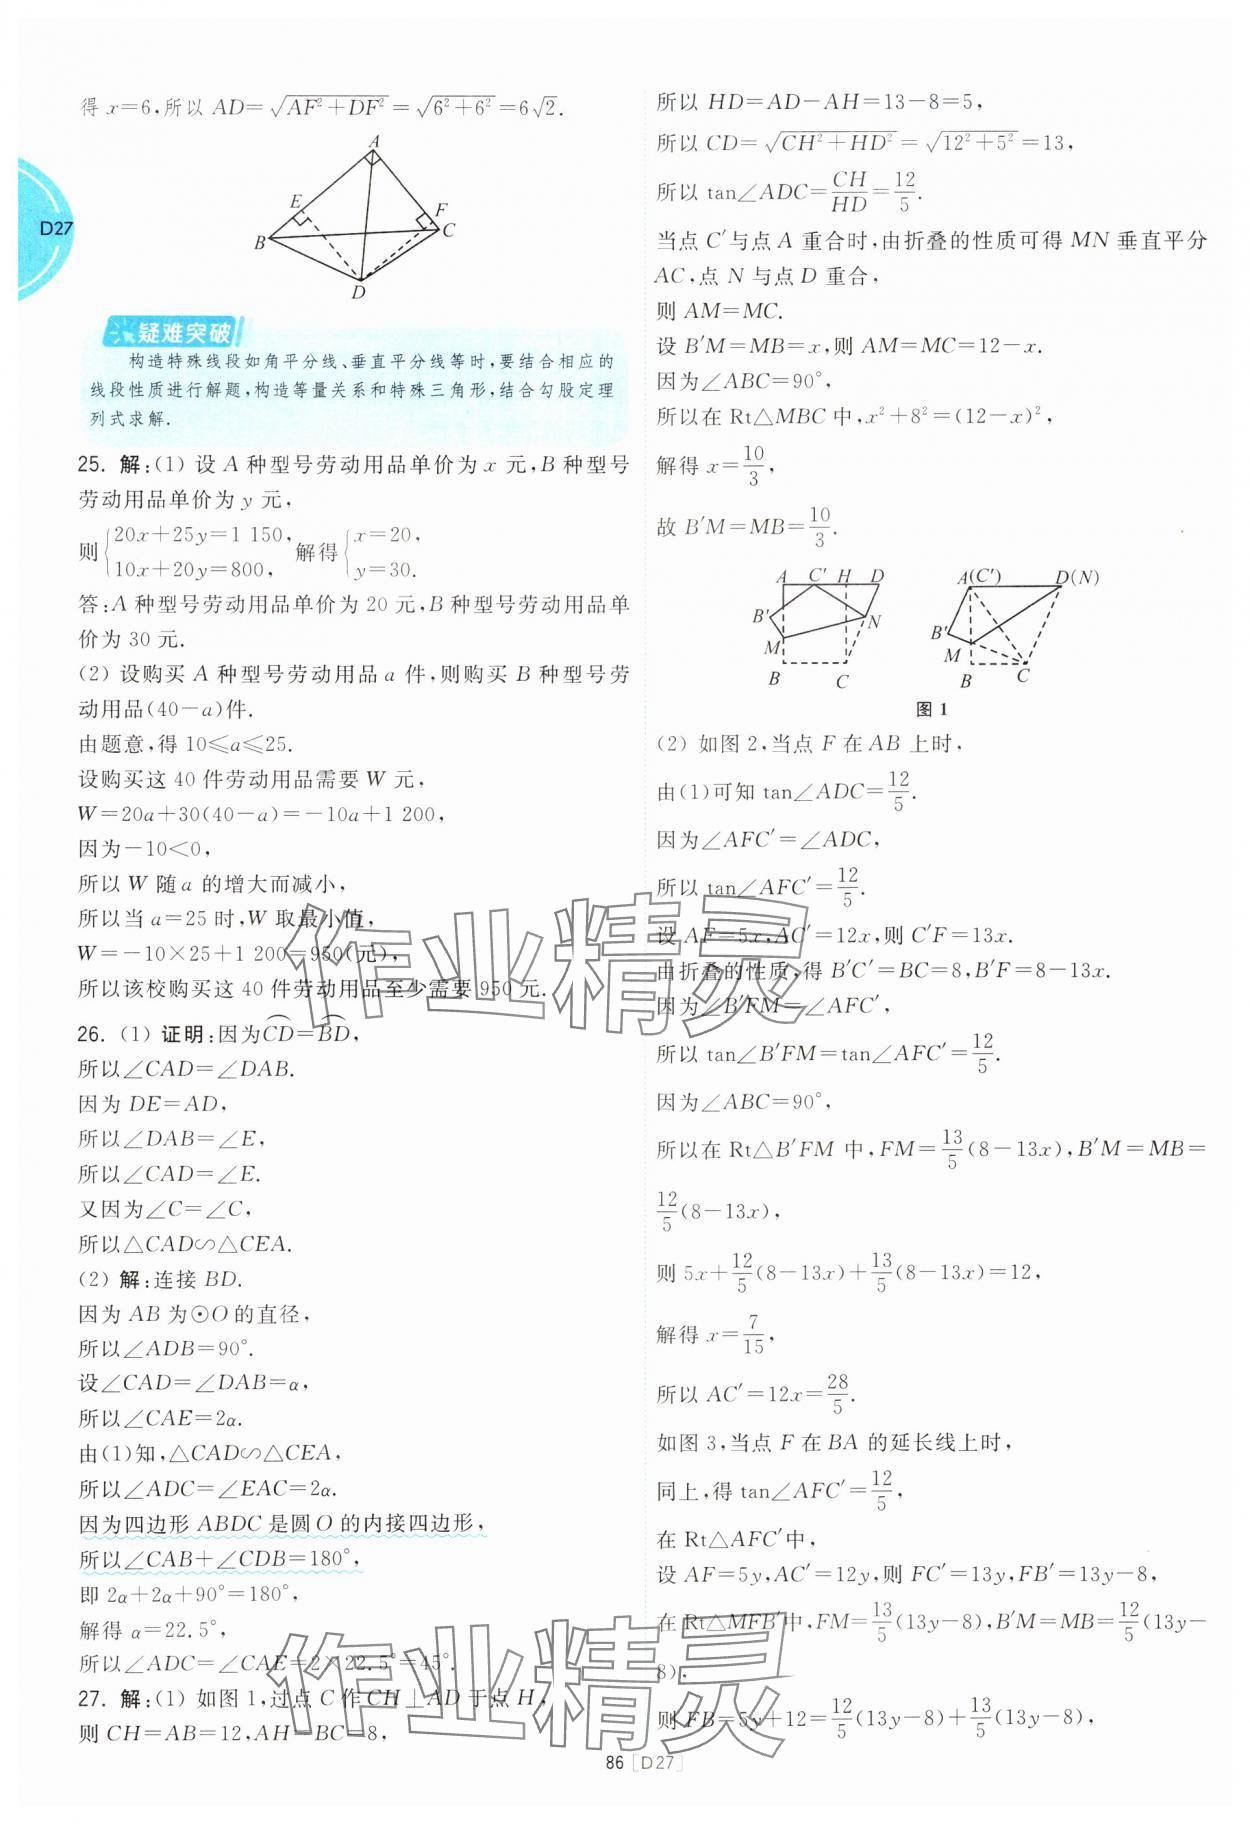 得 x=6,所以 AD=√(AF²+DF²)=√(6²+6²)=6√2.
A
E
F
B
C
D
D27
疑难突破
构造特殊线段如角平分线、垂直平分线等时,要结合相应的
线段性质进行解题,构造等量关系和特殊三角形,结合勾股定理
列式求解.
25. 解:(1) 设 A 种型号劳动用品单价为 x 元,B 种型号
劳动用品单价为 y 元,
则{20x+25y=1 150, 10x+20y=800, 解得{x=20, y=30.
答:A 种型号劳动用品单价为 20 元,B 种型号劳动用品单
价为 30 元.
(2) 设购买 A 种型号劳动用品 a 件,则购买 B 种型号劳
动用品(40-a)件.
由题意,得 10≤a≤25.
设购买这 40 件劳动用品需要 W 元,
W=20a+30(40-a)=-10a+1 200,
因为-10<0,
所以 W 随 a 的增大而减小,
所以当 a=25 时,W 取最小值,
W=-10×25+1 200=950(元),
所以该校购买这 40 件劳动用品至少需要 950 元.
26. (1) 证明:因为⌒CD=⌒BD,
所以∠CAD=∠DAB.
因为 DE=AD,
所以∠DAB=∠E,
所以∠CAD=∠E.
又因为∠C=∠C,
所以△CAD∽△CEA.
(2) 解:连接 BD.
因为 AB 为⊙O 的直径,
所以∠ADB=90°.
设∠CAD=∠DAB=α,
所以∠CAE=2α.
由(1)知,△CAD∽△CEA,
所以∠ADC=∠EAC=2α.
因为四边形 ABDC 是圆 O 的内接四边形,
所以∠CAB+∠CDB=180°,
即 2α+2α+90°=180°,
解得 α=22.5°,
所以∠ADC=∠CAE=2×22.5°=45°.
27. 解:(1) 如图 1,过点 C 作 CH⊥AD 于点 H,
则 CH=AB=12,AH=BC=8,
所以 HD=AD-AH=13-8=5,
所以 CD=√(CH²+HD²)=√(12²+5²)=13,
所以 tan∠ADC=CH/HD=12/5.
当点 C′与点 A 重合时,由折叠的性质可得 MN 垂直平分
AC,点 N 与点 D 重合,
则 AM=MC.
设 B′M=MB=x,则 AM=MC=12-x.
因为∠ABC=90°,
所以在 Rt△MBC 中,x²+8²=(12-x)²,
解得 x=10/3,
故 B′M=MB=10/3.
A C′ H D
B′
N
M
B C
A(C′) D(N)
B′
M
B C
图 1
(2) 如图 2,当点 F 在 AB 上时,
由(1)可知 tan∠ADC=12/5.
因为∠AFC′=∠ADC,
所以 tan∠AFC′=12/5.
设 AF=5x,AC′=12x,则 C′F=13x.
由折叠的性质,得 B′C′=BC=8,B′F=8-13x.
因为∠B′FM=∠AFC′,
所以 tan∠B′FM=tan∠AFC′=12/5.
因为∠ABC=90°,
所以在 Rt△B′FM 中,FM=13/5(8-13x),B′M=MB=
12/5(8-13x),
则 5x+12/5(8-13x)+13/5(8-13x)=12,
解得 x=7/15,
所以 AC′=12x=28/5.
如图 3,当点 F 在 BA 的延长线上时,
同上,得 tan∠AFC′=12/5,
在 Rt△AFC′中,
设 AF=5y,AC′=12y,则 FC′=13y,FB′=13y-8,
在 Rt△MFB′中,FM=13/5(13y-8),B′M=MB=12/5(13y-
8),
则 FB=5y+12=12/5(13y-8)+13/5(13y-8),
作业精灵
作业精灵
86 [D27]